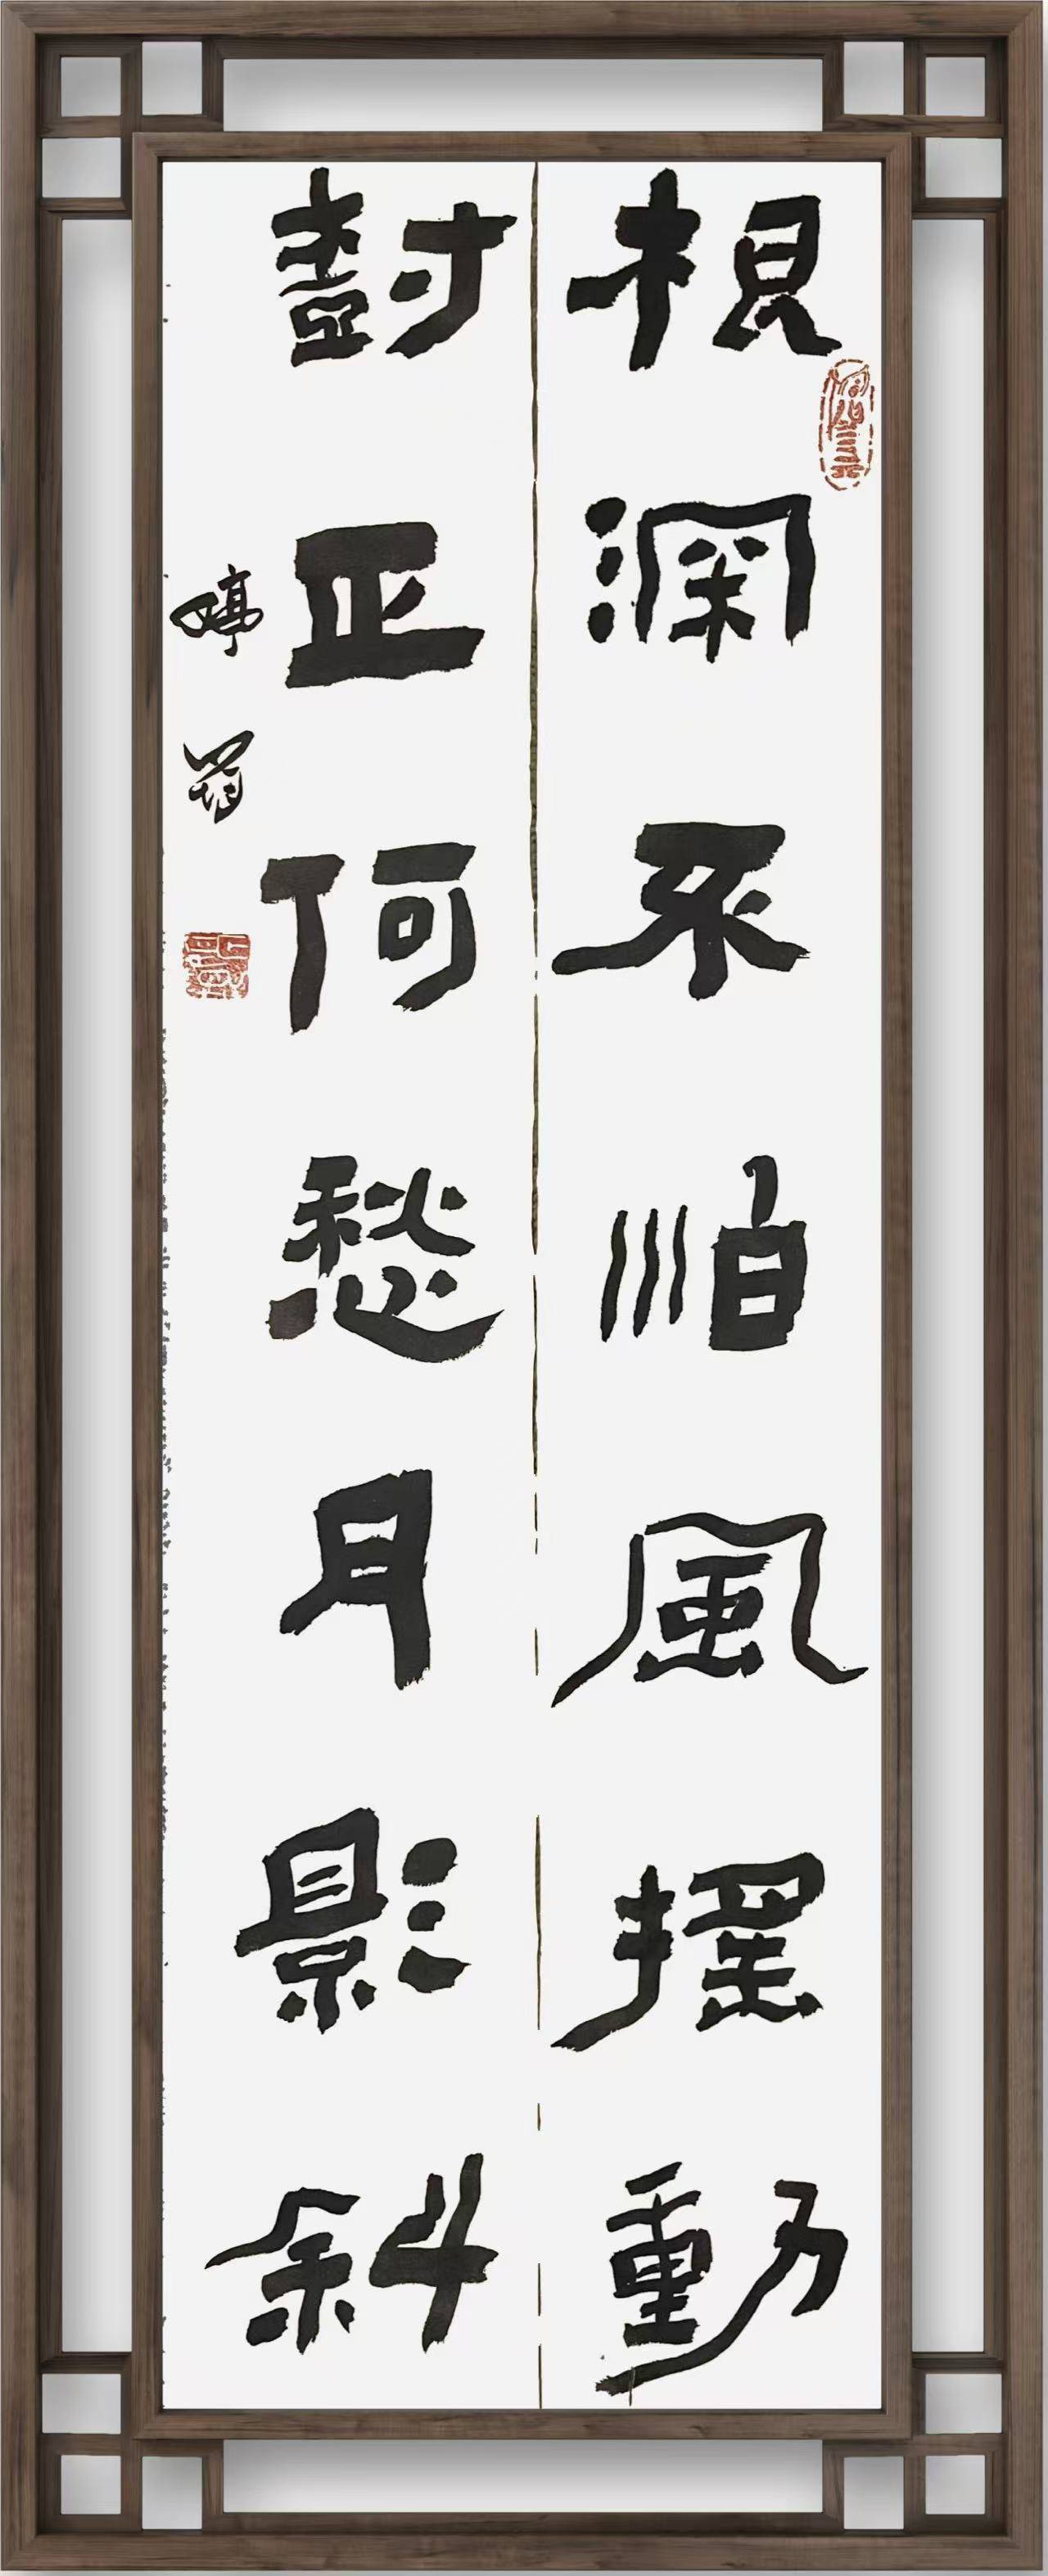 根深不怕風搖動
尌正何愁月影斜
婷